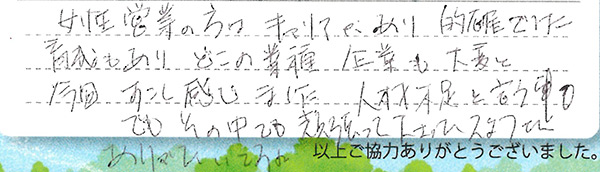 女性営業の方はキャリアがあり 的確でした
育成もあり どこの業種 企業も 大変と
今回 すこし感じました 人材不足と言う事の
でもその中でも頑張って下さいスタッフさん
ありがたいですね
以上ご協力ありがとうございました。